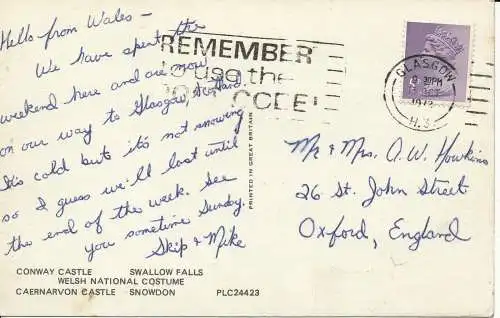 Hello from Wales -
We have spent the
weekend here and are now
on our way to Glasgow, Scotland.
It's cold but it's not snowing
so I guess we'll last until
the end of the week. See
you sometime Sunday.
Skip & Mike
REMEMBER
to use the
POST CODE!
GLASGOW
9 30PM
OCT
1973
PRINTED IN GREAT BRITAIN
Mr & Mrs. A.W. Howkins
26 St. John Street
Oxford, England
CONWAY CASTLE SWALLOW FALLS
WELSH NATIONAL COSTUME
CAERNARVON CASTLE SNOWDON PLC24423